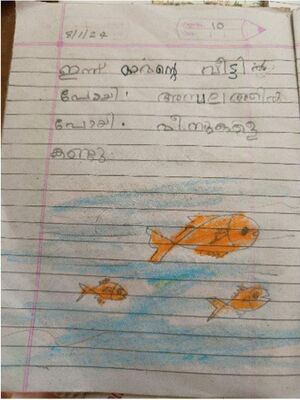 8/1/24
10
ഇന്ന് വീട്ടിൽ
പോയി. അമ്പലത്തിൽ
പോയി. മീനുകളെ
കണ്ടു.